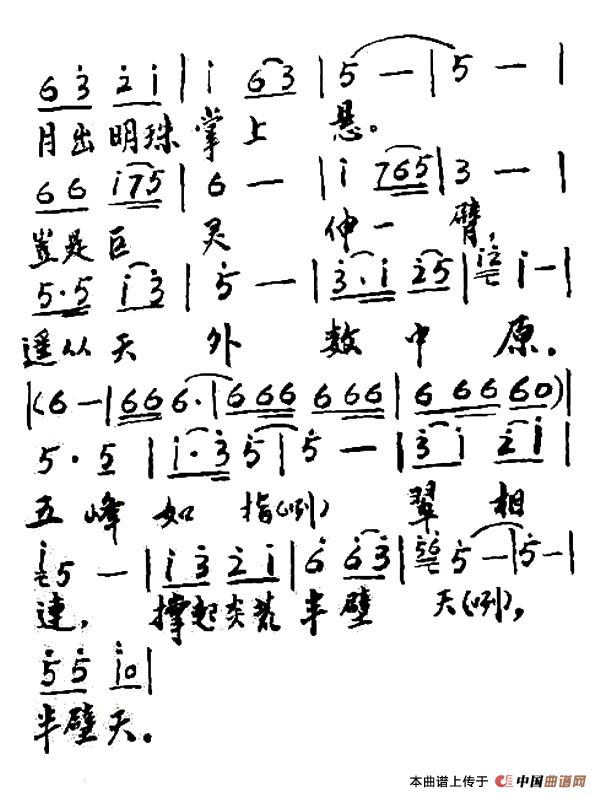 6 3 2 1 | 1 6 3 | 5 — | 5 — |
月出明珠掌上 悬。
6 6 1 7 5 | 6 — | 1 7 6 5 | 3 — |
岂是巨 灵 伸一 臂,
5 · 5 1 3 | 5 — | 3 · 1 2 5 | 1 2 1 — |
遥从天 外 数中 原。
| ( 6 — | 6 6 6 · | 6 6 6 6 6 6 | 6 6 6 6 0 ) |
5 · 5 | 1 · 3 5 | 5 — | 3 1 2 1 |
五峰 如 指(咧) 翠 相
1 5 — | 1 3 2 1 | 6 6 3 | 5 6 5 — | 5 — |
连, 撑起炎荒 半壁 天(咧),
5 5 1 0 |
半壁天。
本曲谱上传于 中国曲谱网